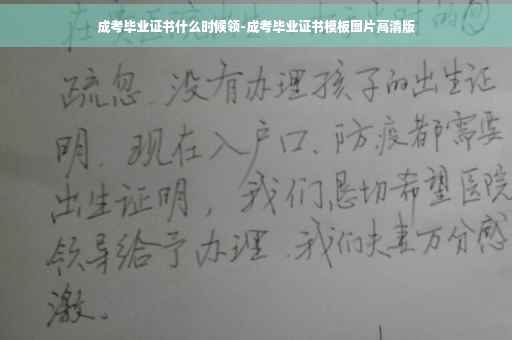 成考毕业证书什么时候领-成考毕业证书模板图片高清版
疏忽、没有办理孩子的出生证
明、现在入户口、防疫都需要
出生证明，我们恳切希望医院
领导给予办理、我们夫妻万分感
激。